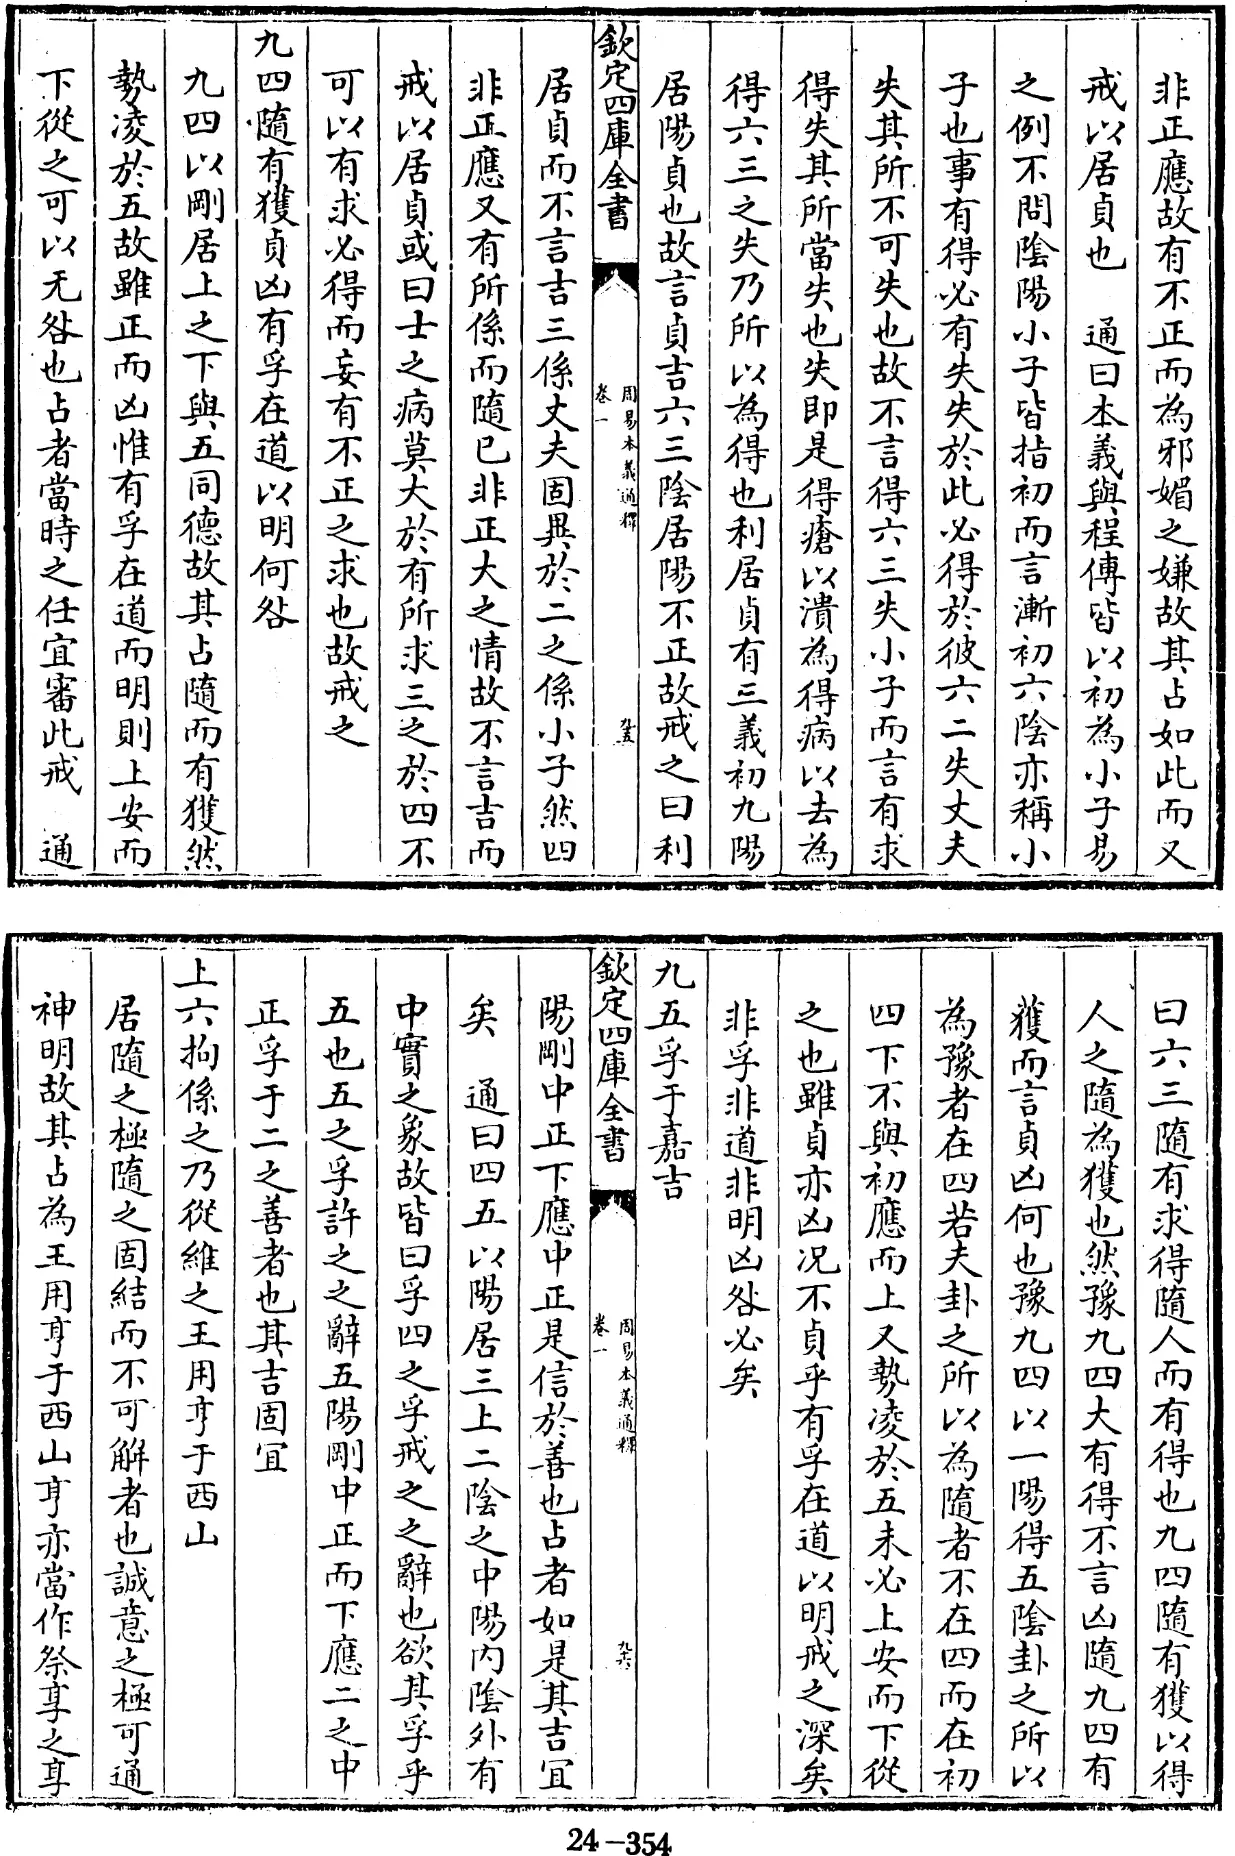 非正應故有不正而為邪媚之嫌故其占如此而又
戒以居貞也　通曰本義與程傳皆以初為小子易
之例不問陰陽小子皆指初而言漸初六陰亦稱小
子也事有得必有失失於此必得於彼六二失丈夫
失其所不可失也故不言得六三失小子而言有求
得失其所當失也失即是得瘡以潰為得病以去為
得六三之失乃所以為得也利居貞有三義初九陽
居陽貞也故言貞吉六三陰居陽不正故戒之曰利
欽定四庫全書
周易本義通釋
卷一
九十五
居貞而不言吉三係丈夫固異於二之係小子然四
非正應又有所係而隨已非正大之情故不言吉而
戒以居貞或曰士之病莫大於有所求三之於四不
可以有求必得而妄有不正之求也故戒之
九四隨有獲貞凶有孚在道以明何咎
九四以剛居上之下與五同德故其占隨而有獲然
勢凌於五故雖正而凶惟有孚在道而明則上安而
下從之可以无咎也占者當時之任宜審此戒　通
曰六三隨有求得隨人而有得也九四隨有獲以得
人之隨為獲也然豫九四大有得不言凶隨九四有
獲而言貞凶何也豫九四以一陽得五陰卦之所以
為豫者在四若夫卦之所以為隨者不在四而在初
四下不與初應而上又勢凌於五未必上安而下從
之也雖貞亦凶况不貞乎有孚在道以明戒之深矣
非孚非道非明凶咎必矣
九五孚于嘉吉
欽定四庫全書
周易本義通釋
卷一
九十六
陽剛中正下應中正是信於善也占者如是其吉宜
矣　通曰四五以陽居三上二陰之中陽内陰外有
中實之象故皆曰孚四之孚戒之之辭也欲其孚乎
五也五之孚許之之辭五陽剛中正而下應二之中
正孚于二之善者也其吉固宜
上六拘係之乃從維之王用亨于西山
居隨之極隨之固結而不可解者也誠意之極可通
神明故其占為王用亨于西山亨亦當作祭享之享
24-354